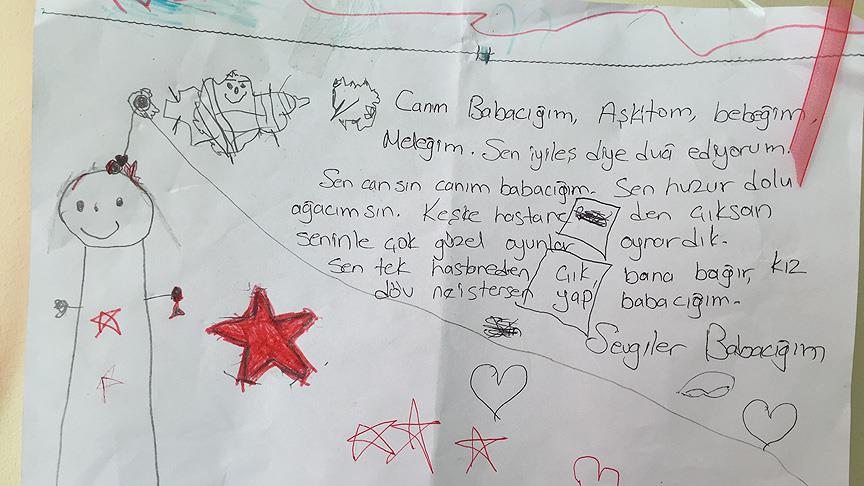 Canım Babacığım, Aşkitom, bebeğim,
Meleğim. Sen iyileş diye dua ediyorum.
Sen cansın canım babacığım. Sen huzur dolu
ağacımsın. Keşke hastane den çıksan
seninle çok güzel oyunlar oynardık.
Sen tek hastaneden çık, bana bağır, kız
döv ne istersen yap babacığım.
Sevgiler Babacığım